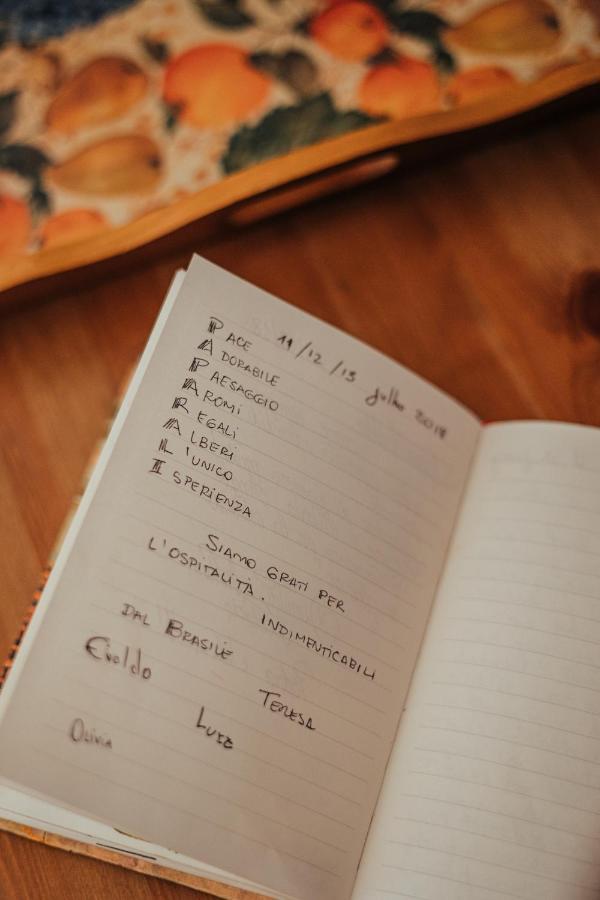 PACE
11/12/13 julho 2018
ADORABILE
PAESAGGIO
AROMI
REGALI
ALBERI
L'UNICO
ISPERIENZA
SIAMO GRATI PER
L'OSPITALITÀ.
INDIMENTICABILI
DAL BRASILE
Evaldo
TERESA
LUIZ
OLIVIA